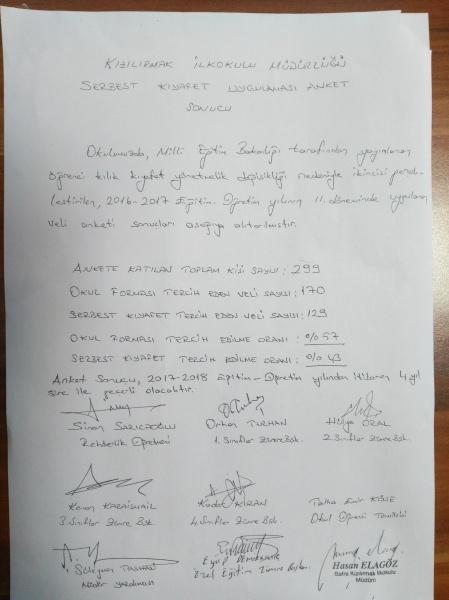 KIZILIRMAK İLKOKULU MÜDÜRLÜĞÜ
SERBEST KIYAFET UYGULAMASI ANKET
SONUCU
Okulumuzda, Milli Eğitim Bakanlığı tarafından yayınlanan
öğrenci kılık kıyafet yönetmelik değişikliği nedeniyle ikincisi gerçek-
leştirilen, 2016-2017 Eğitim-Öğretim yılının 11. döneminde uygulanan
veli anketi sonuçları aşağıya aktarılmıştır.
ANKETE KATILAN TOPLAM KİŞİ SAYISI: 299
OKUL FORMASI TERCİH EDEN VELİ SAYISI: 170
SERBEST KIYAFET TERCİH EDEN VELİ SAYISI: 129
OKUL FORMASI TERCİH EDİLME ORANI: %57
SERBEST KIYAFET TERCİH EDİLME ORANI: %43
Anket Sonucu, 2017-2018 Eğitim-Öğretim yılından itibaren 4 yıl
süre ile geçerli olacaktır.
Sinan Orhan TURHAN Hülya ÖRAL
Rehberlik Öğretmeni 1. Sınıflar Zümre Bşk. 2. Sınıflar Zümre Bşk.
Kenan KARAİSMAİL Kadir KIRAN Talha Emir KÖSE
3. Sınıflar Zümre Bşk. 4. Sınıflar Zümre Bşk. Okul Öğrenci Temsilcisi
Süleyman Eyüp Hasan ELAGÖZ
Müdür Yardımcısı Özel Eğitim Zümre Başkanı Bafra Kızılırmak İlkokulu
Müdürü